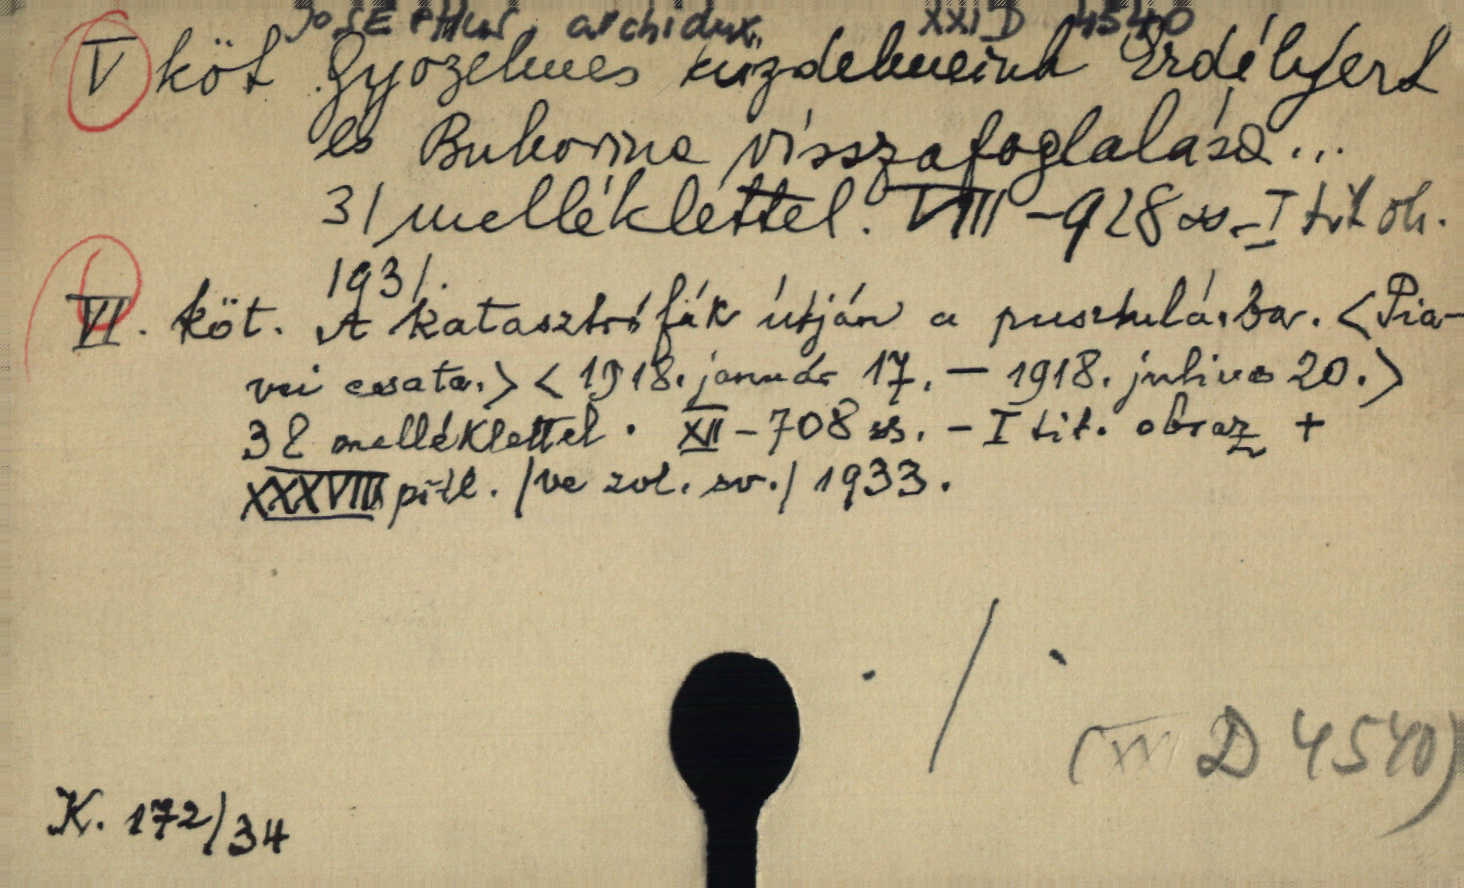 JOSEPHUS, archidux. XXI D 4540
V köt Győzelmes küzdelmeink Erdélyért
és Bukovina visszafoglalása...
31 melléklettel. VIII-928 ss.-I tit. ob.
1931.
VI. köt. A katasztrófák útján a pusztulásba. <Pia-
vei csata.> <1918. január 17. - 1918. julius 20.>
32 melléklettel. XII-708 ss. - I tit. obraz +
XXXVIII příl. /ve zvl. sv./ 1933.
(XXI D 4540)
K. 172/34